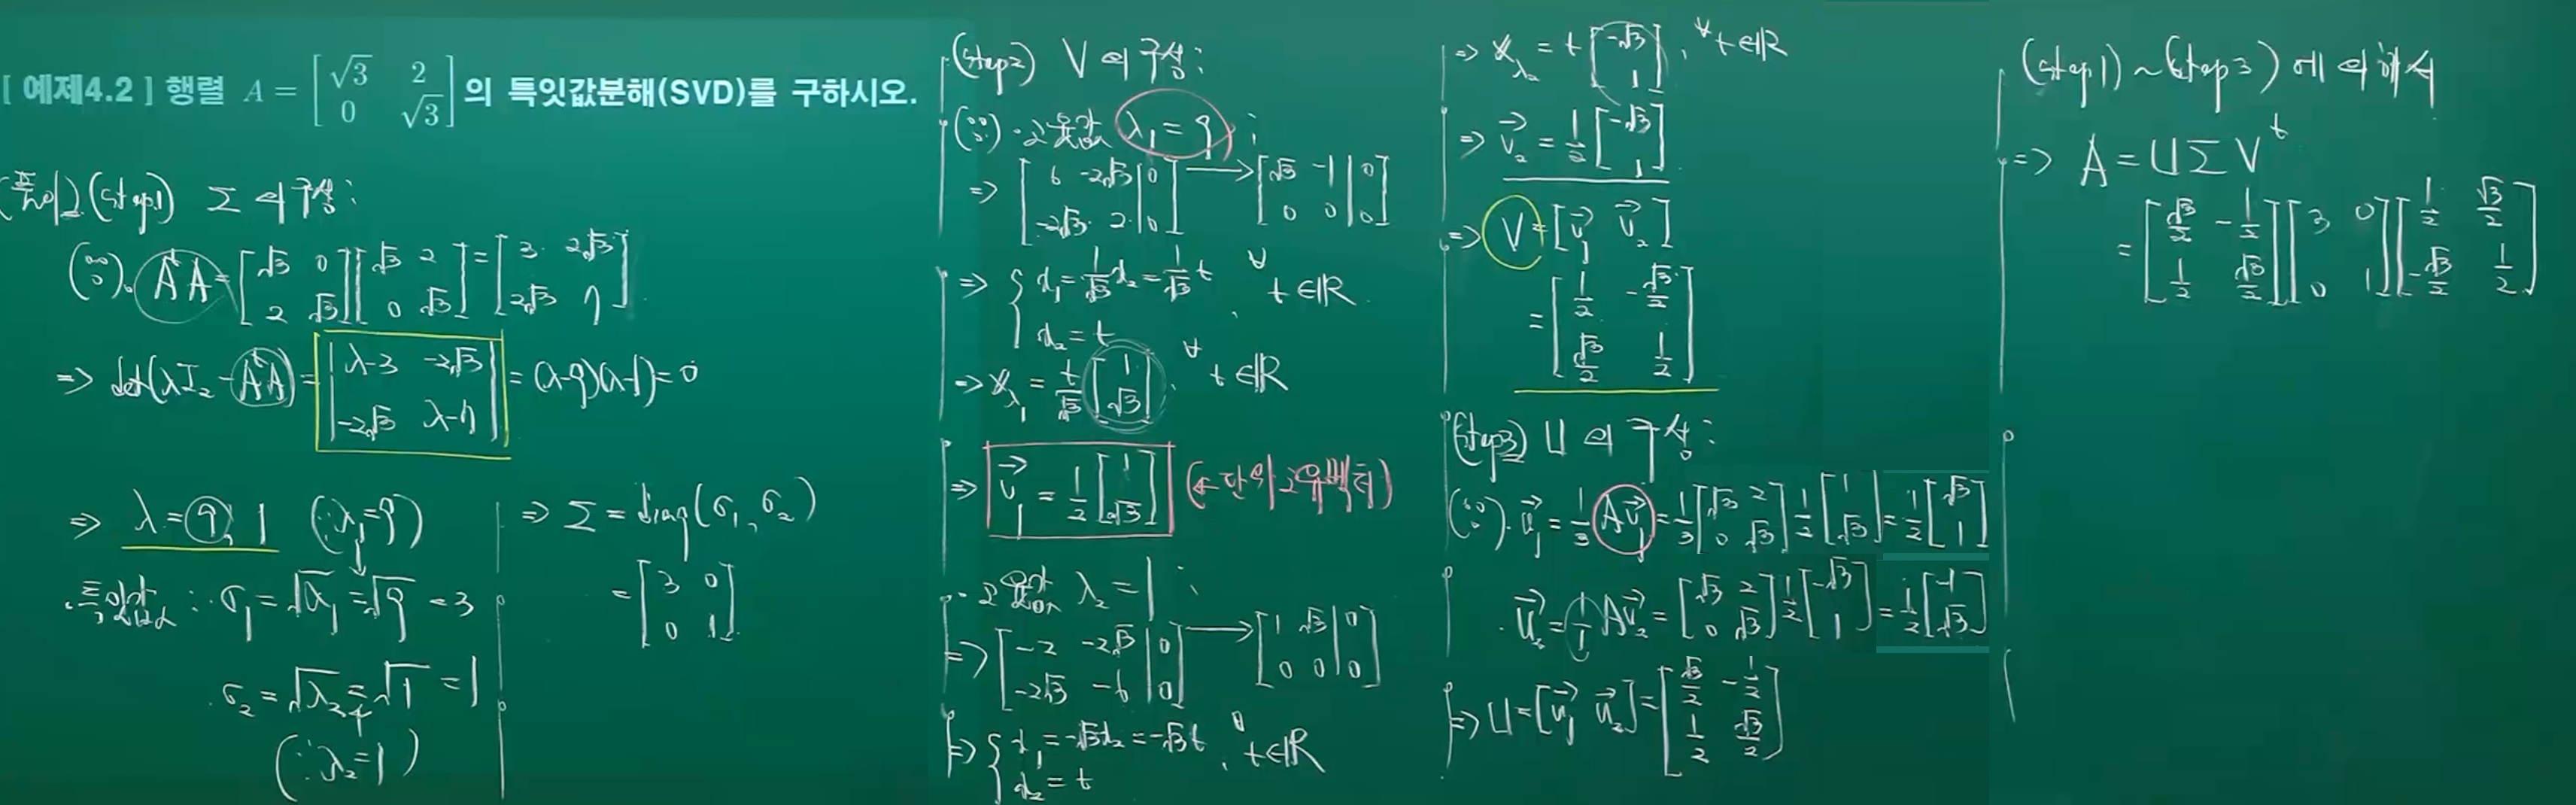 [ 예제4.2 ] 행렬 A = [√3 2; 0 √3] 의 특잇값분해(SVD)를 구하시오.
(풀이) (step1) Σ의 구성:
(∵). AᵗA = [√3 0; 2 √3][√3 2; 0 √3] = [3 2√3; 2√3 7]
⇒ det(λI₂ - AᵗA) = |λ-3 -2√3; -2√3 λ-7| = (λ-9)(λ-1) = 0
⇒ λ = 9, 1 (∵ λ₁=9)
·특잇값 : σ₁ = √λ₁ = √9 = 3
σ₂ = √λ₂ = √1 = 1
(∵ λ₂=1)
⇒ Σ = diag(σ₁, σ₂)
= [3 0; 0 1]
(step2) V의 구성:
(∵) ·고윳값 λ₁ = 9 ;
⇒ [6 -2√3 | 0; -2√3 2 | 0] → [√3 -1 | 0; 0 0 | 0]
⇒ { x₁ = 1/√3 x₂ = 1/√3 t, ∀t∈ℝ
x₂ = t
⇒ x_λ₁ = t/√3 [1; √3], ∀t∈ℝ
⇒ v₁ = 1/2 [1; √3] (← 단위고유벡터)
·고윳값 λ₂ = 1 ;
⇒ [-2 -2√3 | 0; -2√3 -6 | 0] → [1 √3 | 0; 0 0 | 0]
⇒ { x₁ = -√3x₂ = -√3t, ∀t∈ℝ
x₂ = t
⇒ x_λ₂ = t [-√3; 1], ∀t∈ℝ
⇒ v₂ = 1/2 [-√3; 1]
⇒ V = [v₁ v₂]
= [1/2 -√3/2; √3/2 1/2]
(step3) U의 구성:
(∵). u₁ = 1/3 Av₁ = 1/3 [√3 2; 0 √3] 1/2 [1; √3] = 1/2 [√3; 1]
· u₂ = 1/1 Av₂ = [√3 2; 0 √3] 1/2 [-√3; 1] = 1/2 [-1; √3]
⇒ U = [u₁ u₂] = [√3/2 -1/2; 1/2 √3/2]
(step1) ~ (step3) 에 의해서
⇒ A = UΣVᵗ
= [√3/2 -1/2; 1/2 √3/2][3 0; 0 1][1/2 √3/2; -√3/2 1/2]